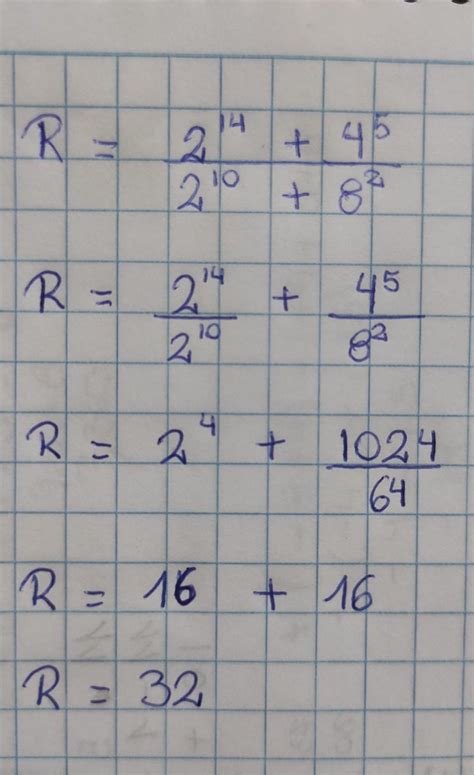 R = (2^14 + 4^5) / (2^10 + 8^2)
R = 2^14 / 2^10 + 4^5 / 8^2
R = 2^4 + 1024 / 64
R = 16 + 16
R = 32